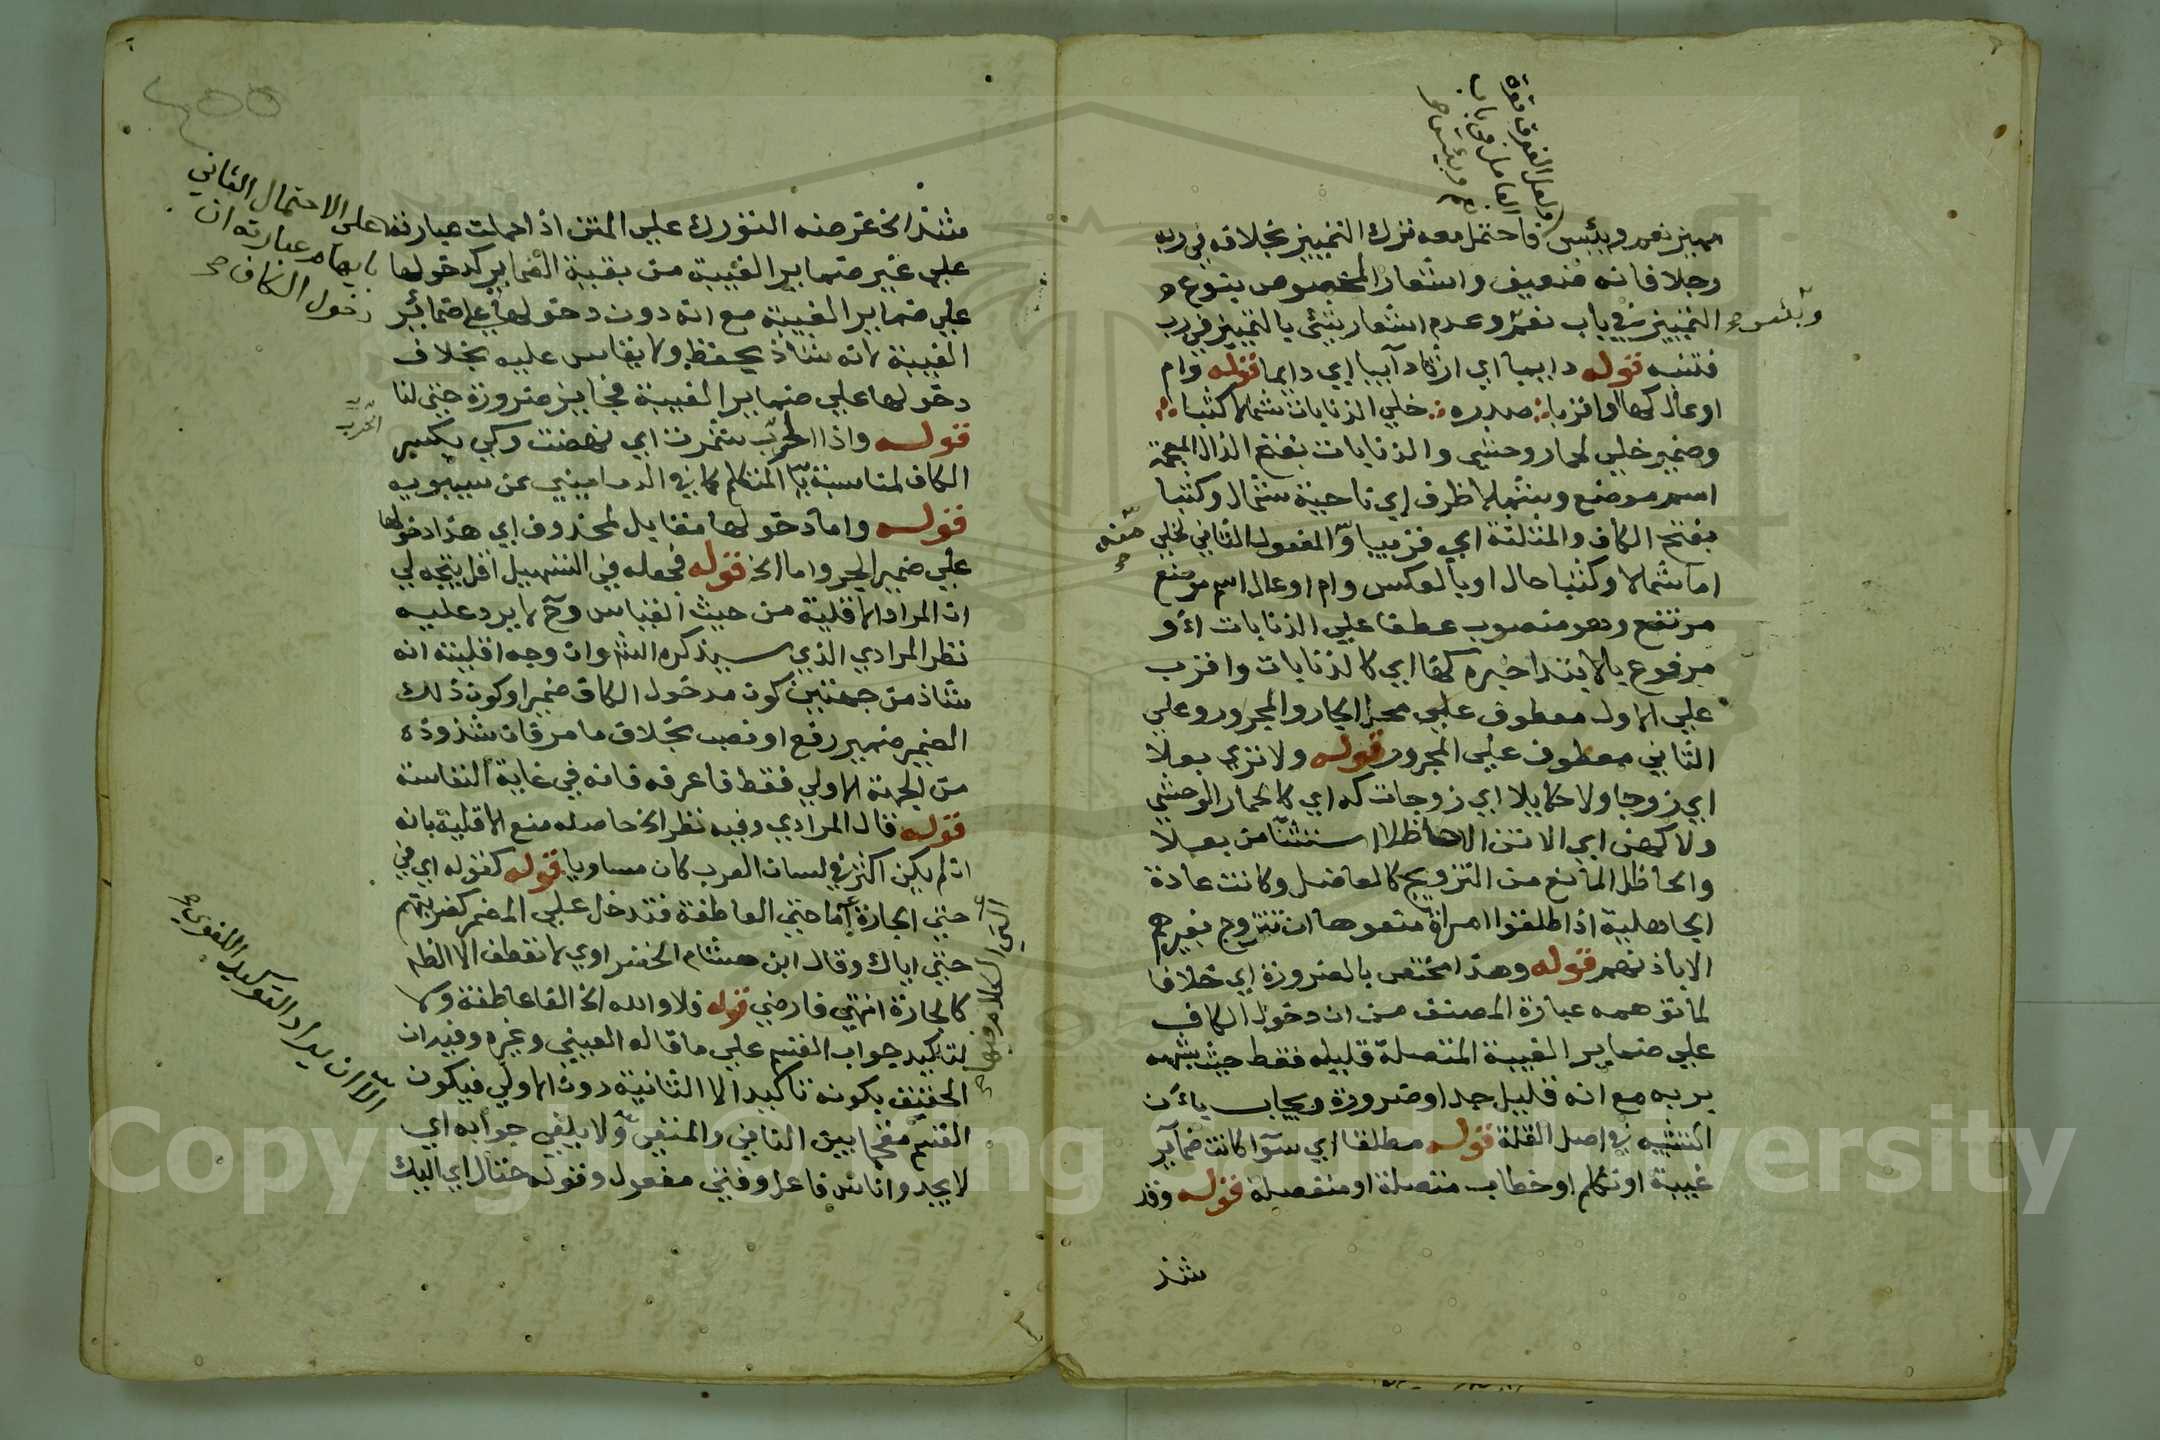 ولعل الفرق قوة
العامل في باب
نعم وبئس صح
مميز نعم وبئس فاحتمل معه ترك التمييز بخلافه في ربه
رجلا فانه ضعيف واشعار المخصوص بنوع
وبئس صح
التمييز في باب نعم وعدم اشعار شئ بالتمييز في رب
فتنبه قوله دايبا اي ارتكادآيبا اي دايما قوله وام
اوعال كها او اقربا صدره خلي الذنابات شمالا كثبا
وضمير خلي لحمار وحشي والذنابات بفتح الذال المعجمة
اسم موضع وشمالا ظرف اي ناحية شمال وكثبا
بفتح الكاف والمثلثة اي قريبا والمفعول الثاني لخلي
ضمنه صح
اما شمالا وكثبا حال او بالعكس وام اوعال اسم موضع
مرتفع وهو منصوب عطفا علي الذنابات او
مرفوع بالابتدا خبره كها اي كالذنابات واقرب
علي الاول معطوف علي محل الجار والمجرور وعلي
الثاني معطوف علي المجرور قوله ولا تري بعلا
اي زوجا ولا حلايلا اي زوجات كه اي كالحمار الوحشي
ولا كهن اي الاتن الا حاظلا استثنا من بعلا
والحاظل المانع من التزويج كالعاضل وكانت عادة
الجاهلية اذا طلقوا امراة منعوها ان تتزوج بغيرهم
الا باذنهم قوله وهذا مختص بالضرورة اي خلافا
لما توهمه عبارة المصنف من ان دخول الكاف
علي ضماير الغيبة المتصلة قليله فقط حيث شبهه
بربه مع انه قليل جدا او ضرورة ويجاب بان
التشبيه في اصل القلة قوله مطلقا اي سوآ كانت ضمآير
غيبة او تكلم او خطاب متصلة او منفصلة قوله وقد
شذ
شذ الخ غرضه التورك علي المتن اذا حملت عبارته
على الاحتمال الثاني
بايهام عبارته ان
دخول الكاف صح
علي غير ضماير الغيبة من بقية الضماير كدخولها
علي ضماير الغيبة مع انه دون دخولها علي ضمائر
الغيبة لانه شاذ يحفظ ولا يقاس عليه بخلاف
دخولها علي ضماير الغيبة فجايز ضرورة حتى لنا
الحرب
قوله واذا الحرب شمرت اي نهضت وكي بكسر
الكاف لمناسبة يآ المتكلم كما في الدماميني عن سيبويه
قوله واما دخولها مقابل لمحذوف اي هذا دخولها
علي ضمير الجر واما الخ قوله فجعله في التسهيل اقل يتجه لي
ان المراد الاقلية من حيث القياس وح لا يرد عليه
نظر المرادي الذي سيذكره الش وان وجه اقليته انه
شاذ من جهتين كون مدخول الكاف ضميرا وكون ذلك
الضمير ضمير رفع او نصب بخلاف ما مر فان شذوذه
من الجهة الاولي فقط فاعرفه فانه في غاية النفاسة
قوله قال المرادي وفيه نظر الخ حاصله منع الاقلية بانه
ان لم يكن اكثر في لسان العرب كان مساويا قوله كقوله اي في
حتي الجارة اما حتي العاطفة فتدخل علي المضمر كضربتهم
التي الكلام فيها صح
حتي اياك وقال ابن هشام الخضراوي لا تعطف الا الظاهر
كالجارة انتهي فارضي قوله فلا والله الخ الفا عاطفة ولا
لتاكيد جواب القسم علي ما قاله العيني وغيره وفيه ان
الحقيق بكونه تاكيدا لا الثانية دون الاولي فيكون
الا ان يراد التوكيد اللغوي صح
القسم مقحما بين النافي والمنفي ولا يلفي جوابه اي
لا يجد واناس فاعل وفتي مفعول وقوله حتاك اي اليك